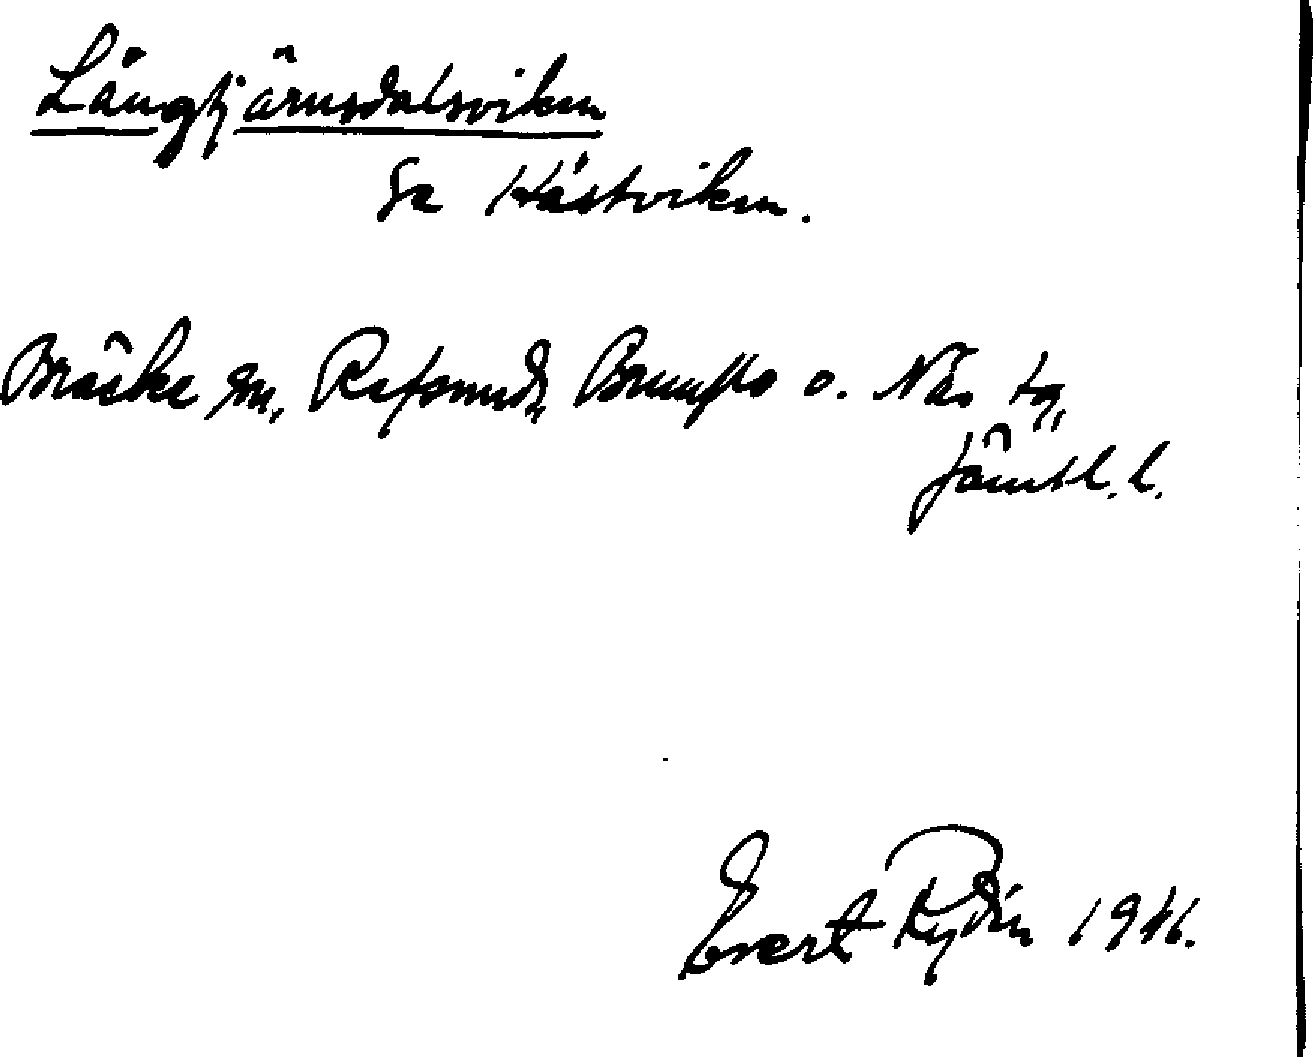 Långtjärnsdalsviken
Se Hästviken.
Bräcke sn, Refsunds, Brunflo o. Näs tg,
Jämtl. l.
Evert Rydin 1946.